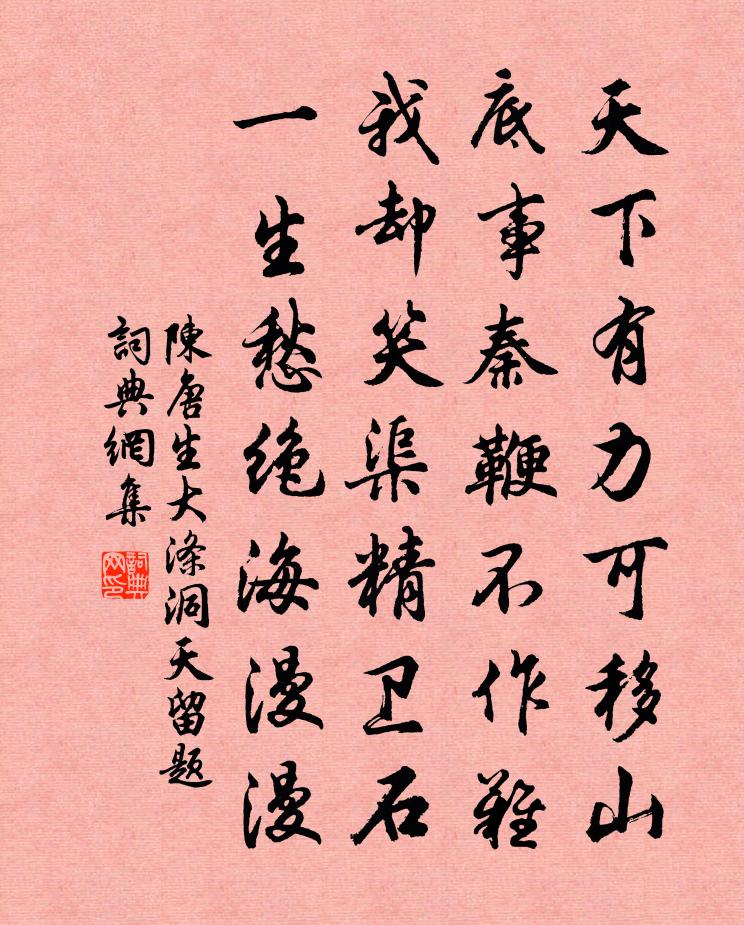 天下有力可移山
底事秦鞭不作難
我却笑渠精卫石
一生愁绝海漫漫
陳唐生大涤洞天留题
詞典網集
詞典
网印